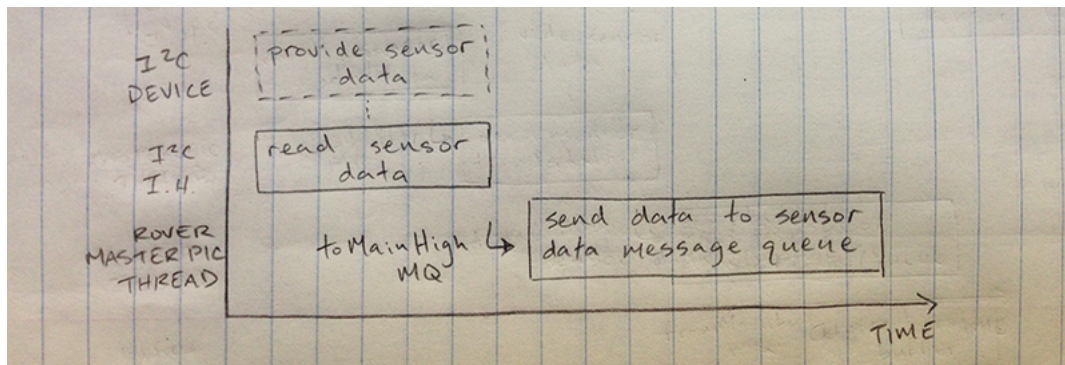 I²C
DEVICE
provide sensor
data
I²C
I.H.
read sensor
data
ROVER
MASTER PIC
THREAD
toMainHigh
MQ
send data to sensor
data message queue
TIME